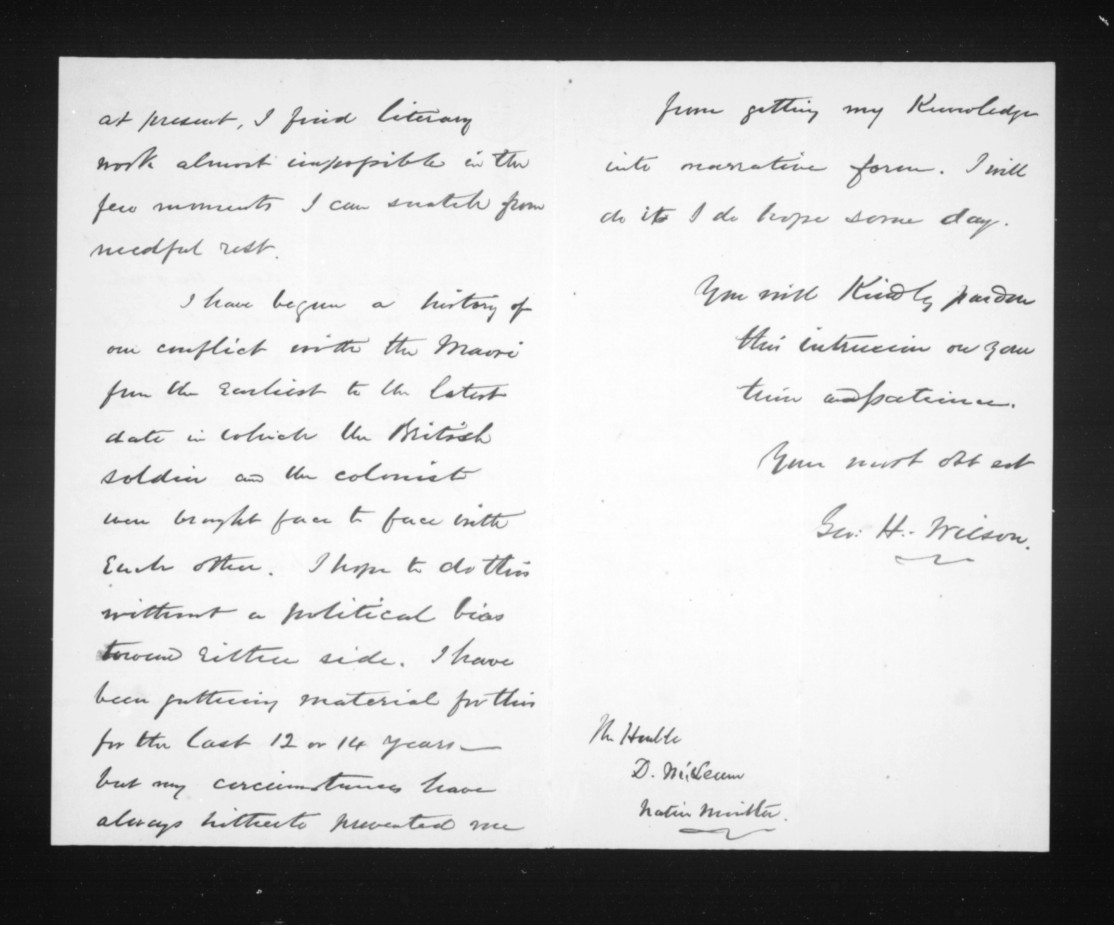 at present, I find literary
work almost impossible in the
few moments I can snatch from
needful rest.
I have begun a history of
our conflict with the Maori
from the Earliest to the latest
date in which the British
soldier and the colonist
were brought face to face with
Each other. I hope to do this
without a political bias
toward Either side. I have
been gathering material for this
for the last 12 or 14 years—
but my circumstances have
always hitherto prevented me
from getting my Knowledge
into narrative form. I will
do it I do hope some day.
You will Kindly pardon
this intrusion on your
time and patience.
Your most obt svt
Geo. H. Wilson.
The Honble
D. McLean
Native Minister.